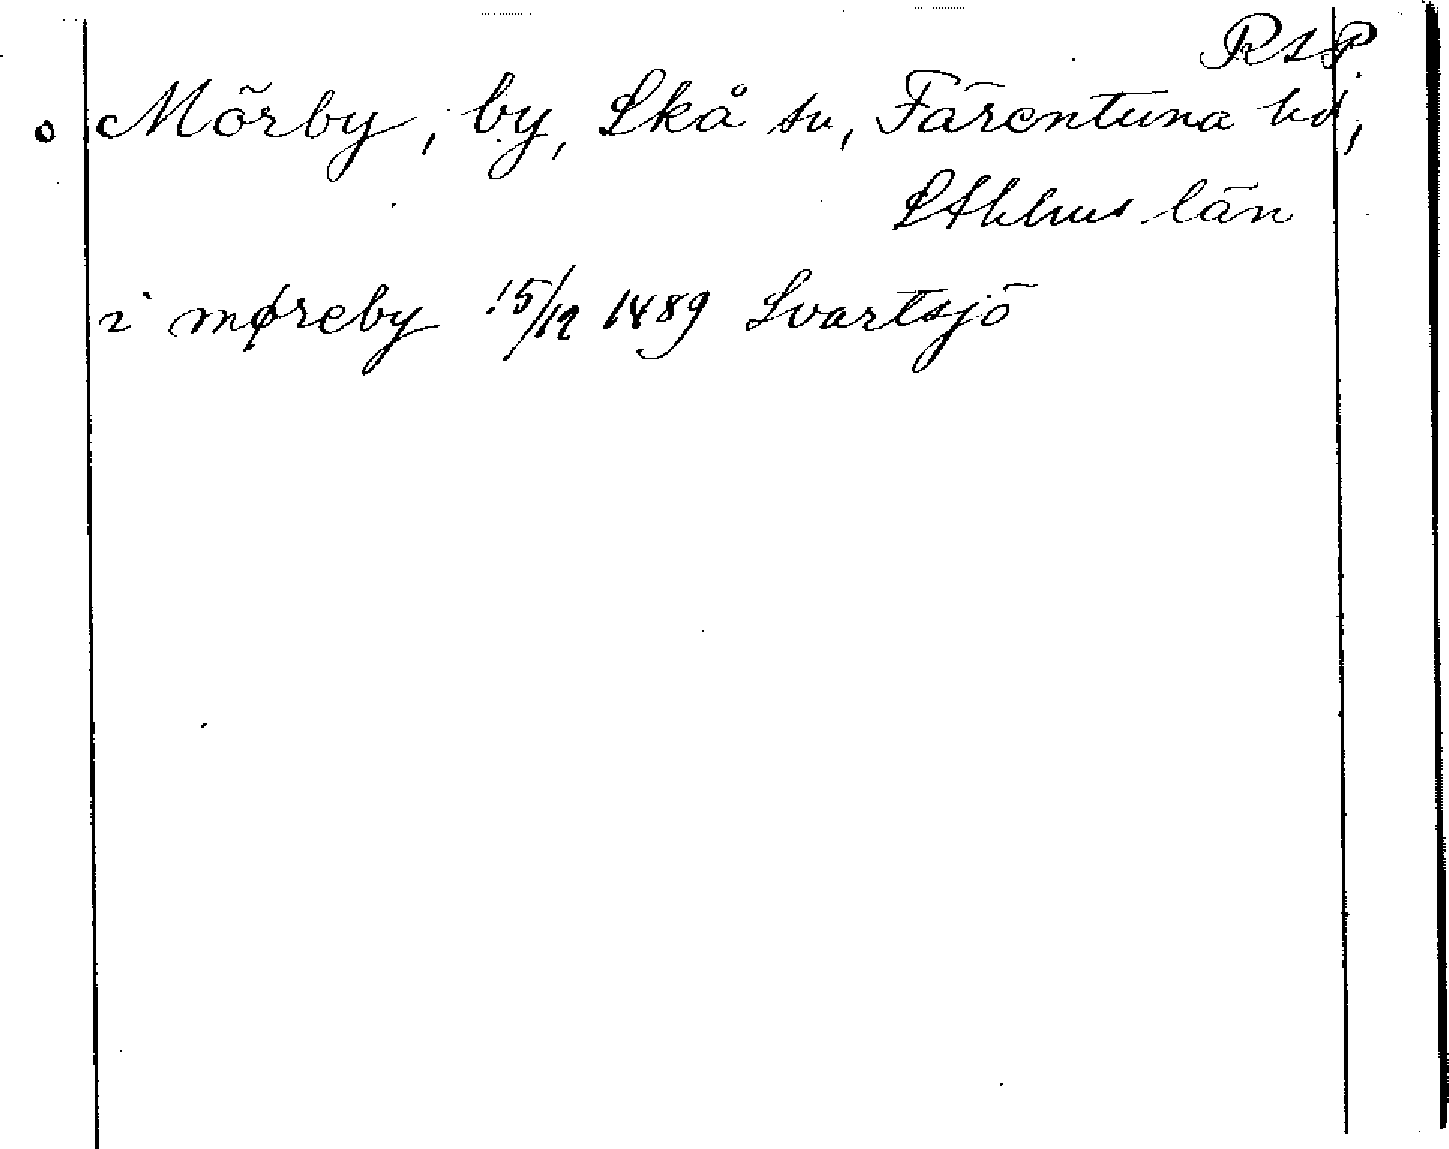 RAP
o Mörby, by, Skå sn, Färentuna hd,
Sthlms län
i møreby 15/12 1489 Svartsjö